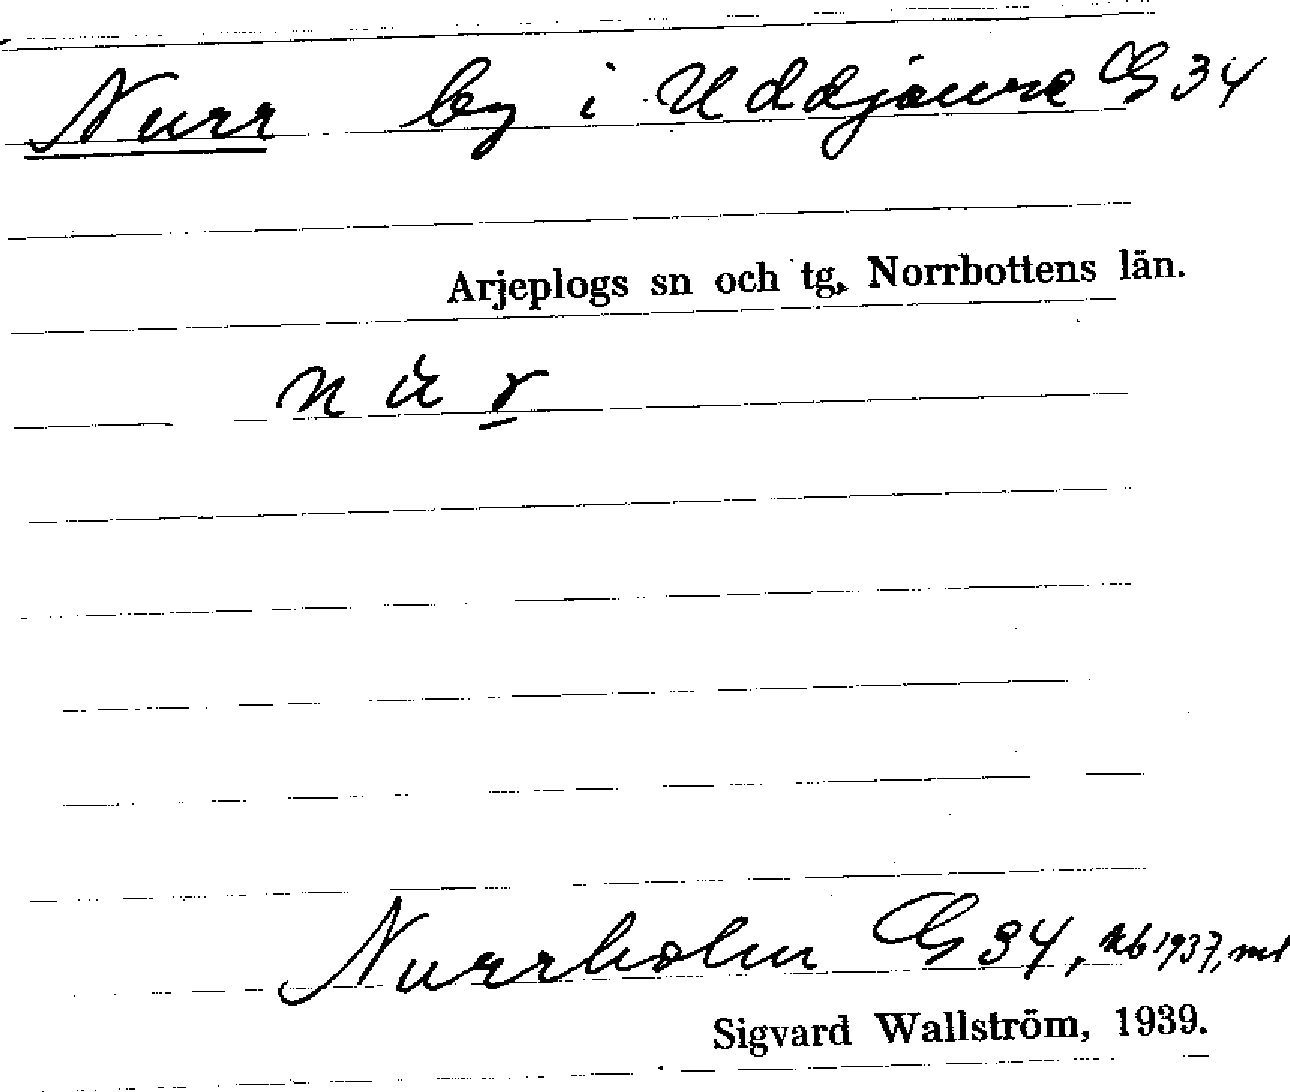 Nurr by i Uddjaure G 34
Arjeplogs sn och tg, Norrbottens län.
n ù r
Nurrholm G 34, Nb 1937, mt
Sigvard Wallström, 1939.